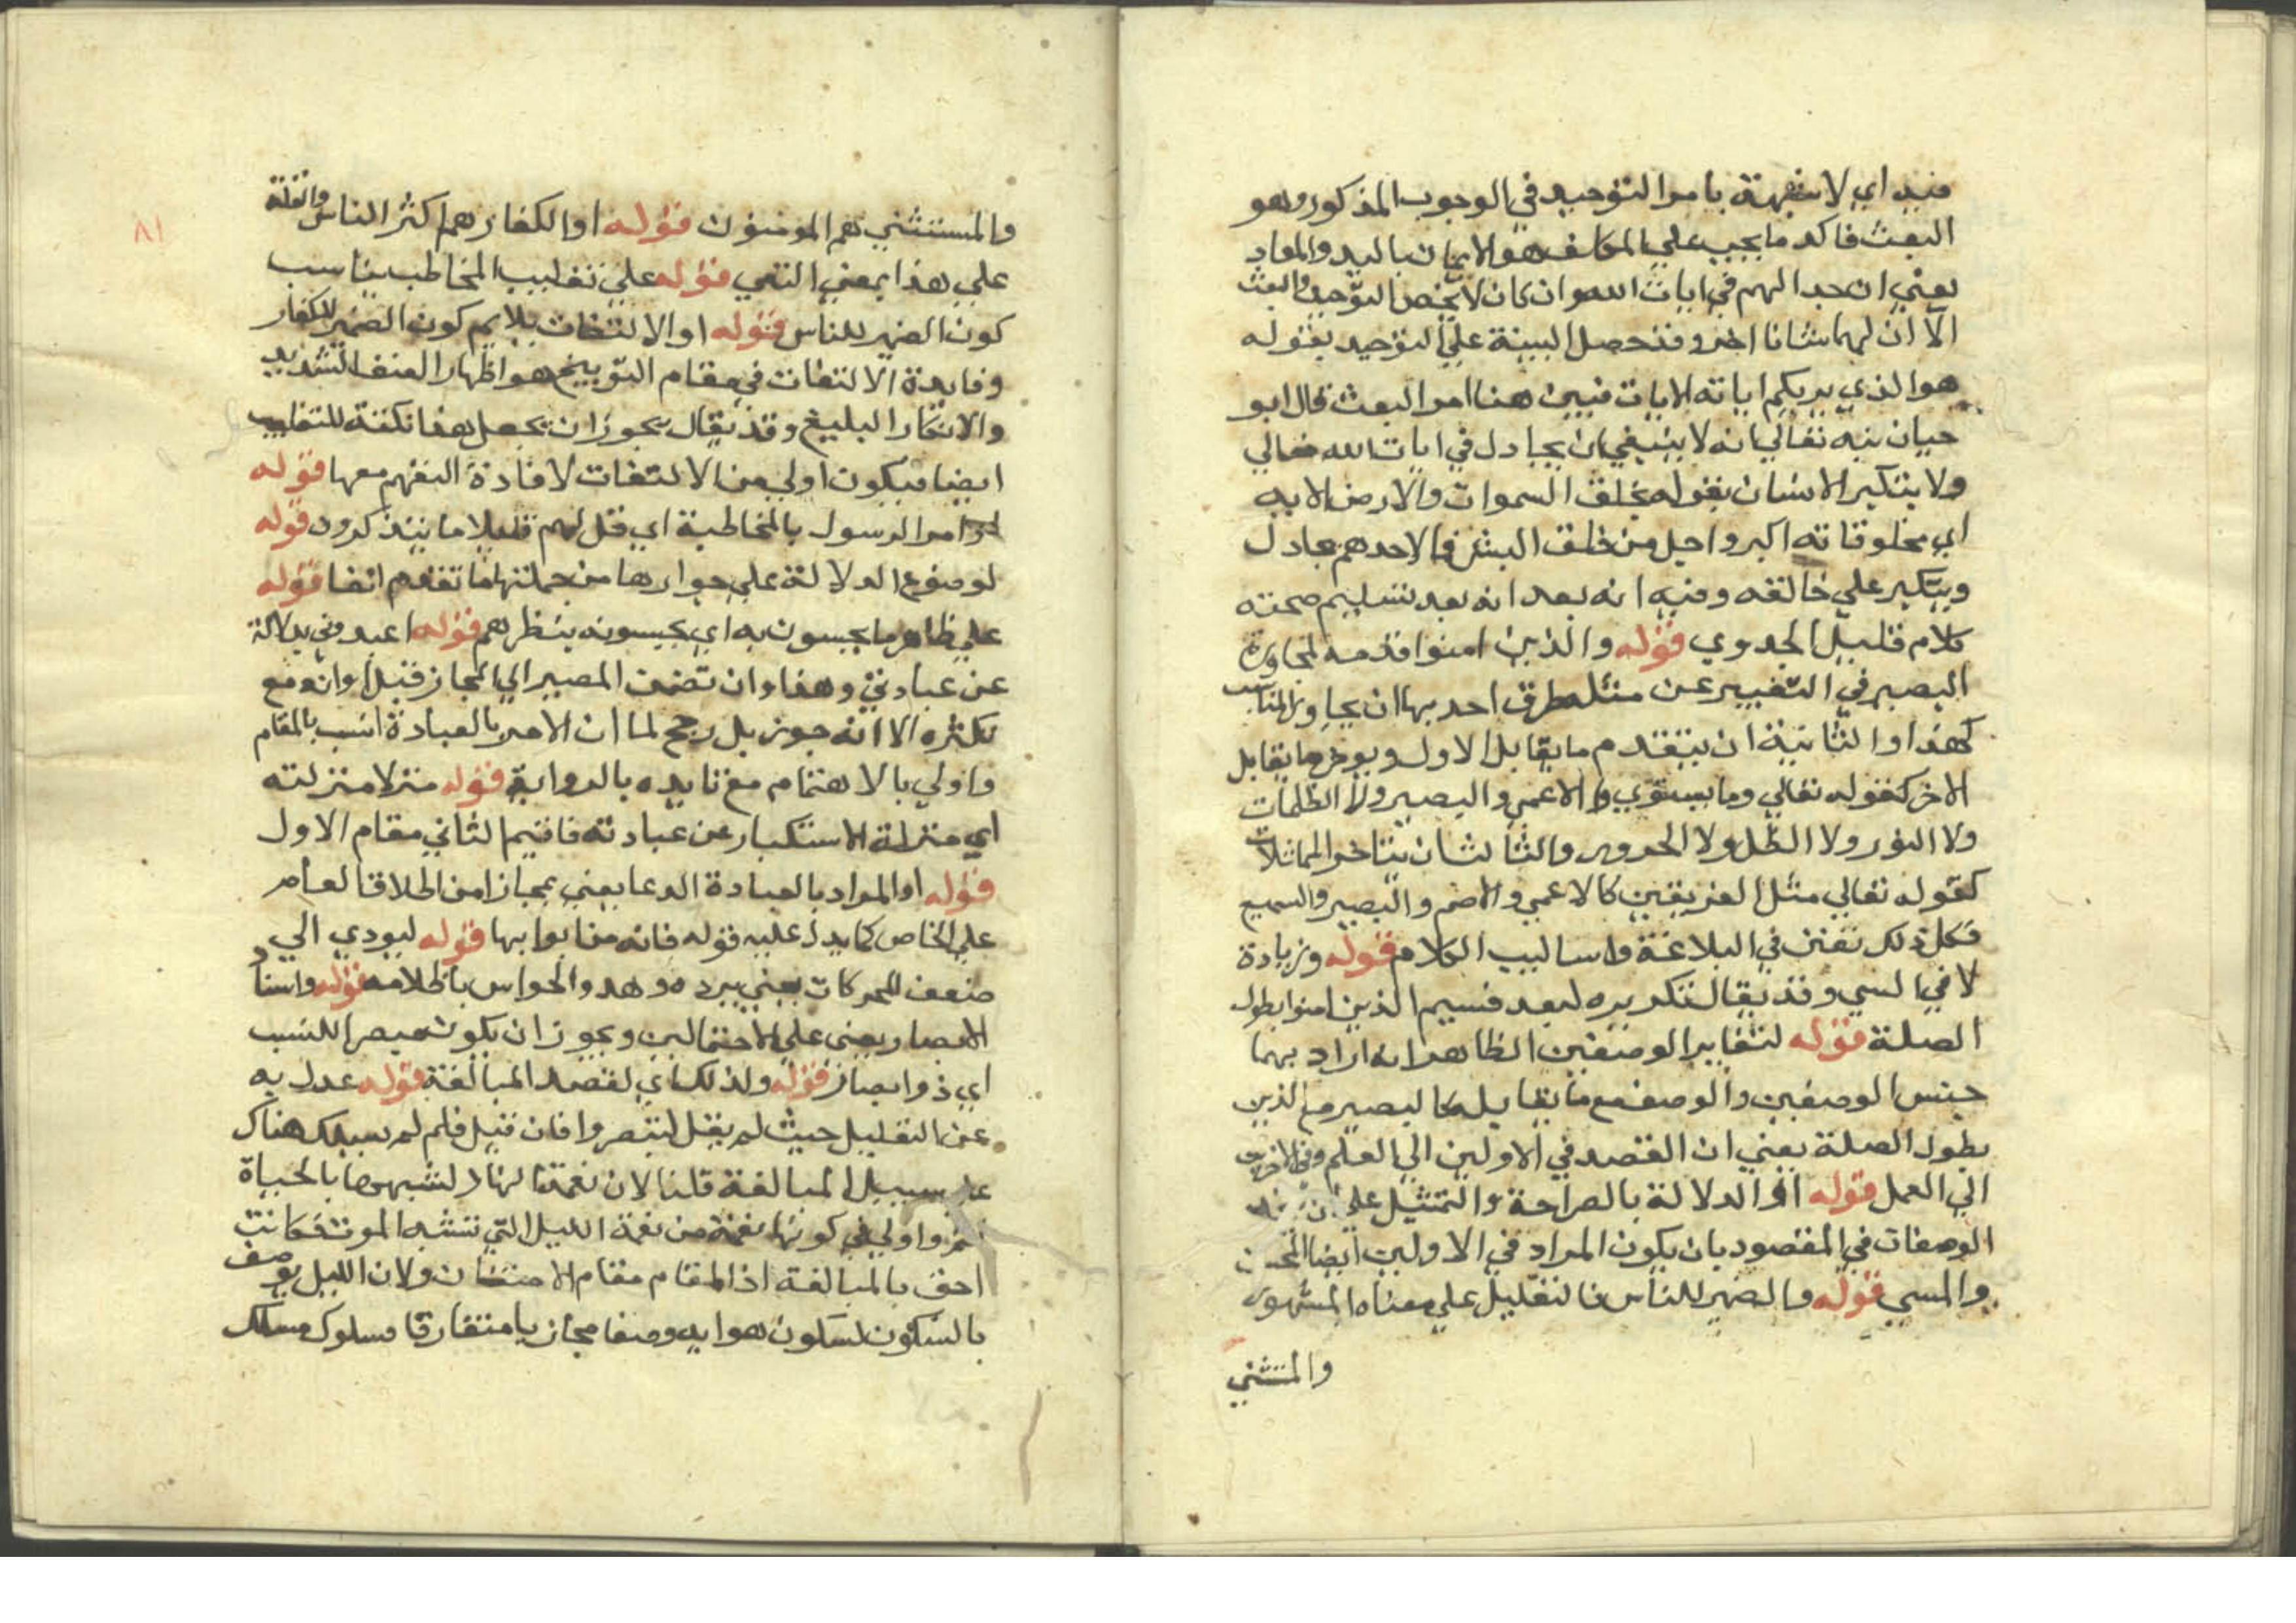 فيه اي لا شبهة بامر التوحيد في الوجوب المذكور وهو
البعث فاكد ما يجب على المكلف هو الايمان بالمبدء والمعاد
يعني ان جدالهم في ايات الله وان كان لا يخص التوحيد والبعث
الا ان لهما شانا اخر وقد حصل البينة على التوحيد بقوله
هو الذي يريكم اياته الايات فبين هنا امر البعث قال ابو
حيان نبه تعالى انه لا ينبغي ان يجادل في ايات الله تعالي
ولا يتكبر الانسان بقوله لخلق السموات والارض الايه
اي مخلوقاته اكبر واجل من خلق البشر فما لاحدهم يجادل
ويتكبر على خالقه وفيه انه بعد انه بعد تسليم صحته
كلام قليل الجدوي قوله والذين امنوا قدمه لمجاورة
البصير في التغيير عن مثله طرق احديها ان يجاور المناسب
كهذا والثانية ان يتقدم ما يقابل الاول ويوخر ما يقابل
الاخر كقوله تعالي وما يستوي الاعمي والبصير ولا الظلمات
ولا النور ولا الظل ولا الحرور والثالث ان يتاخر المماثلات
كقوله تعالي مثل الفريقين كالاعمي والاصم والبصير والسميع
فكل ذلك تفنن في البلاغة واساليب الكلام قوله وزيادة
لا في المسي وقد يقال تكريره لبعد قسيم الذين امنوا بطول
الصلة قوله لتغاير الوصفين الظاهر انه اراد بهما
جنس الوصفين والوصف مع ما يقابله كالبصير مع الذين
بطول الصلة يعني ان القصد في الاولين الي العلم وفي الاخرين
الي العمل قوله او الدلالة بالصراحة والتمثيل على ان
الوصفات في المقصود بان يكون المراد في الاولين ايضا المحسن
والمسي قوله والضمير للناس فالتقليل على معناه المشهور
والمستثني
والمستثني هم المومنون قوله او الكفار هم اكثر الناس والقلة
على هذا بمعني النفي قوله على تغليب المخاطب يناسب
كون الضمير للناس قوله او الالتفات يلايم كون الضمير للكفار
وفايدة الالتفات في مقام التوبيخ هو اظهار العنف الشديد
والانكار البليغ وقد يقال يجوز ان يجعل هذا نكتة للتغليب
ايضا فيكون اولي من الالتفات لافادة التفهم معها قوله
او امر الرسول بالمخاطبة اي قل لهم قليلا ما يتذكرون قوله
لوضوع الدلالة على جوازها من جملتها ما تقدم انفا قوله
على ظاهر ما يحسون به اي يحسونه بنظرهم قوله اعبدوني بدلالة
عن عبادتي وهذا وان تضمن المصير الي المجاز قبل اوانه مع
تكثره الا انه جوز بل رجح لما ان الامر بالعبادة انسب بالمقام
واولي بالاهتمام مع تايده بالرواية قوله منزلا منزلته
اي منزلة الاستكبار عن عبادته فاقيم الثاني مقام الاول
قوله او المراد بالعبادة الدعا يعني مجازا من اطلاق العام
على الخاص كما يدل عليه قوله فانه من ابوابها قوله ليودي الي
ضعف المحركات يعني ببرده وهدو الحواس باظلامه قوله واسناد
الابصار يعني على الاحتمالين ويجوز ان يكون مبصرا للنسب
اي ذو ابصار قوله ولذلك اي لقصد المبالغة قوله عدل به
عن التعليل حيث لم يقل لتبصروا فان قيل فلم لم يسلك هناك
على سبيل المبالغة قلنا لان نعمة النهار لشبهها بالحياة
اتم واولي في كونها نعمة من نعمة الليل التي تشبه الموت فكانت
احق بالمبالغة اذ المقام مقام الامتنان ولان الليل يوصف
بالسكون لسكون هوايه وصفا مجازيا متعارفا فسلوك مسلك
٨١